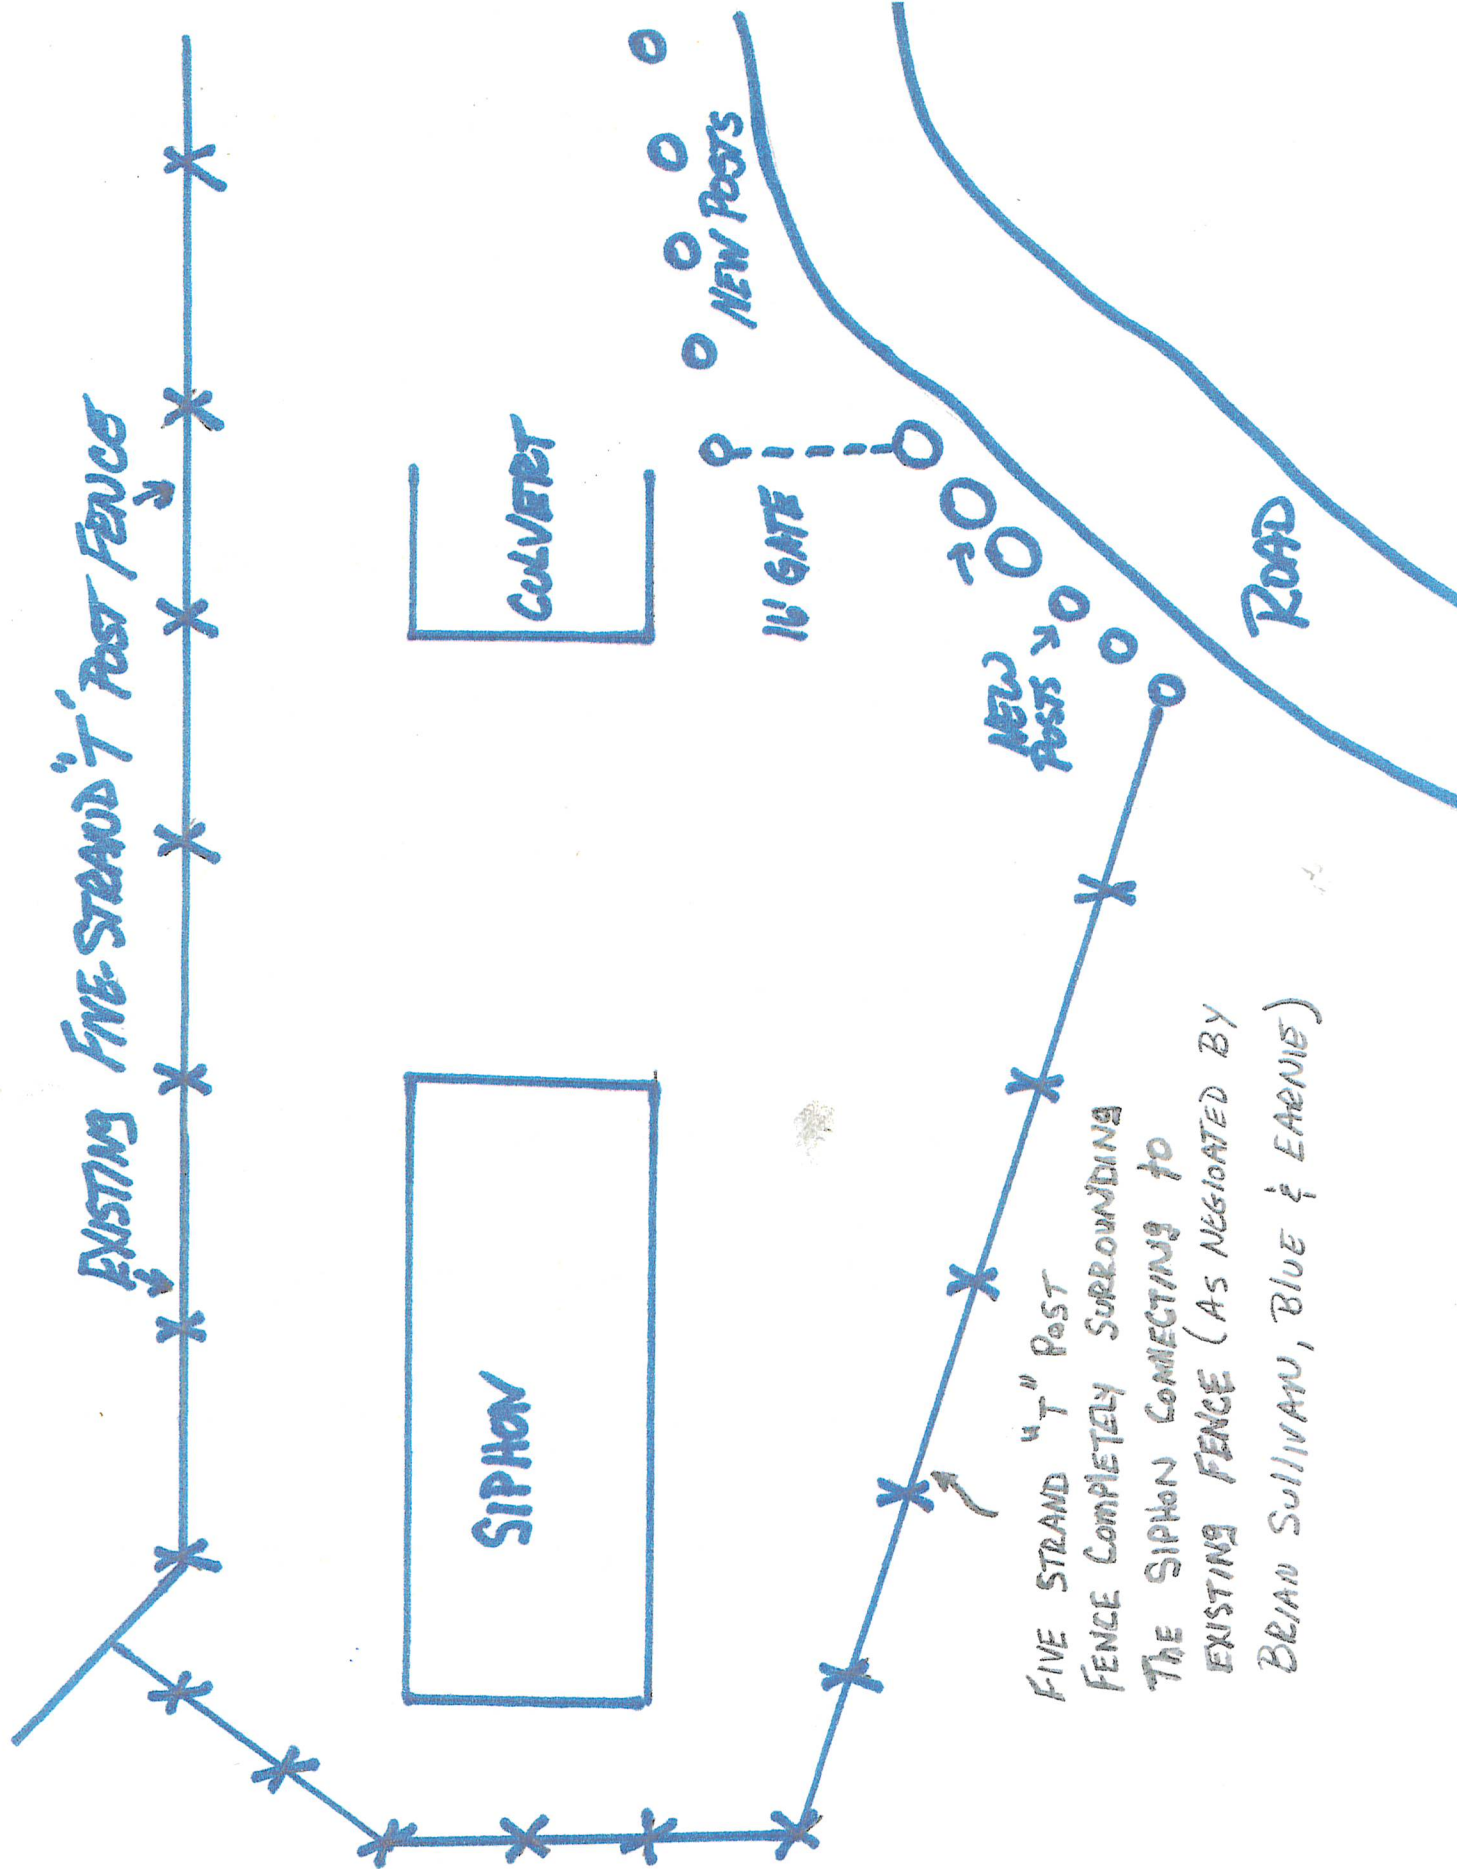 EXISTING FIVE-STRAND "T" POST FENCE
CULVERT
NEW POSTS
16' GATE
NEW
POSTS
ROAD
SIPHON
FIVE STRAND "T" POST
FENCE COMPLETELY SURROUNDING
THE SIPHON CONNECTING to
EXISTING FENCE (AS NEGIOATED BY
BRIAN SULLIVAN, BLUE & EARNIE)